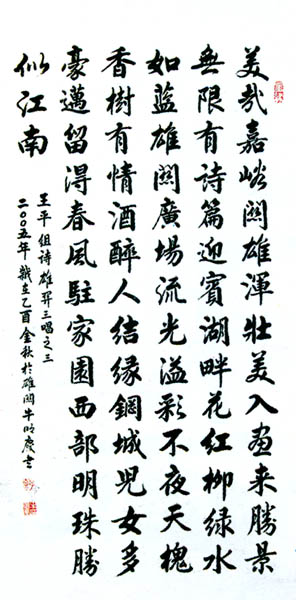 美哉嘉峪關雄渾壯美入畫来勝景
無限有詩篇迎賓湖畔花紅柳緑水
如藍雄關廣場流光溢彩不夜天槐
香樹有情酒醉人結緣鋼城兒女多
豪邁留得春風駐家園西部明珠勝
似江南
王平组詩雄關三唱之三
二〇〇五年歲在乙酉金秋於雄關牛慶書